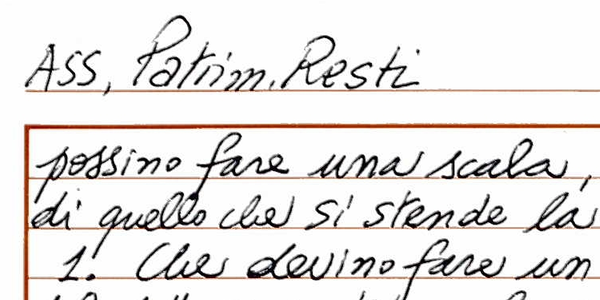 Ass, Patrim. Resti
possino fare una scala,
di quello che si stende la
1. Che devino fare un